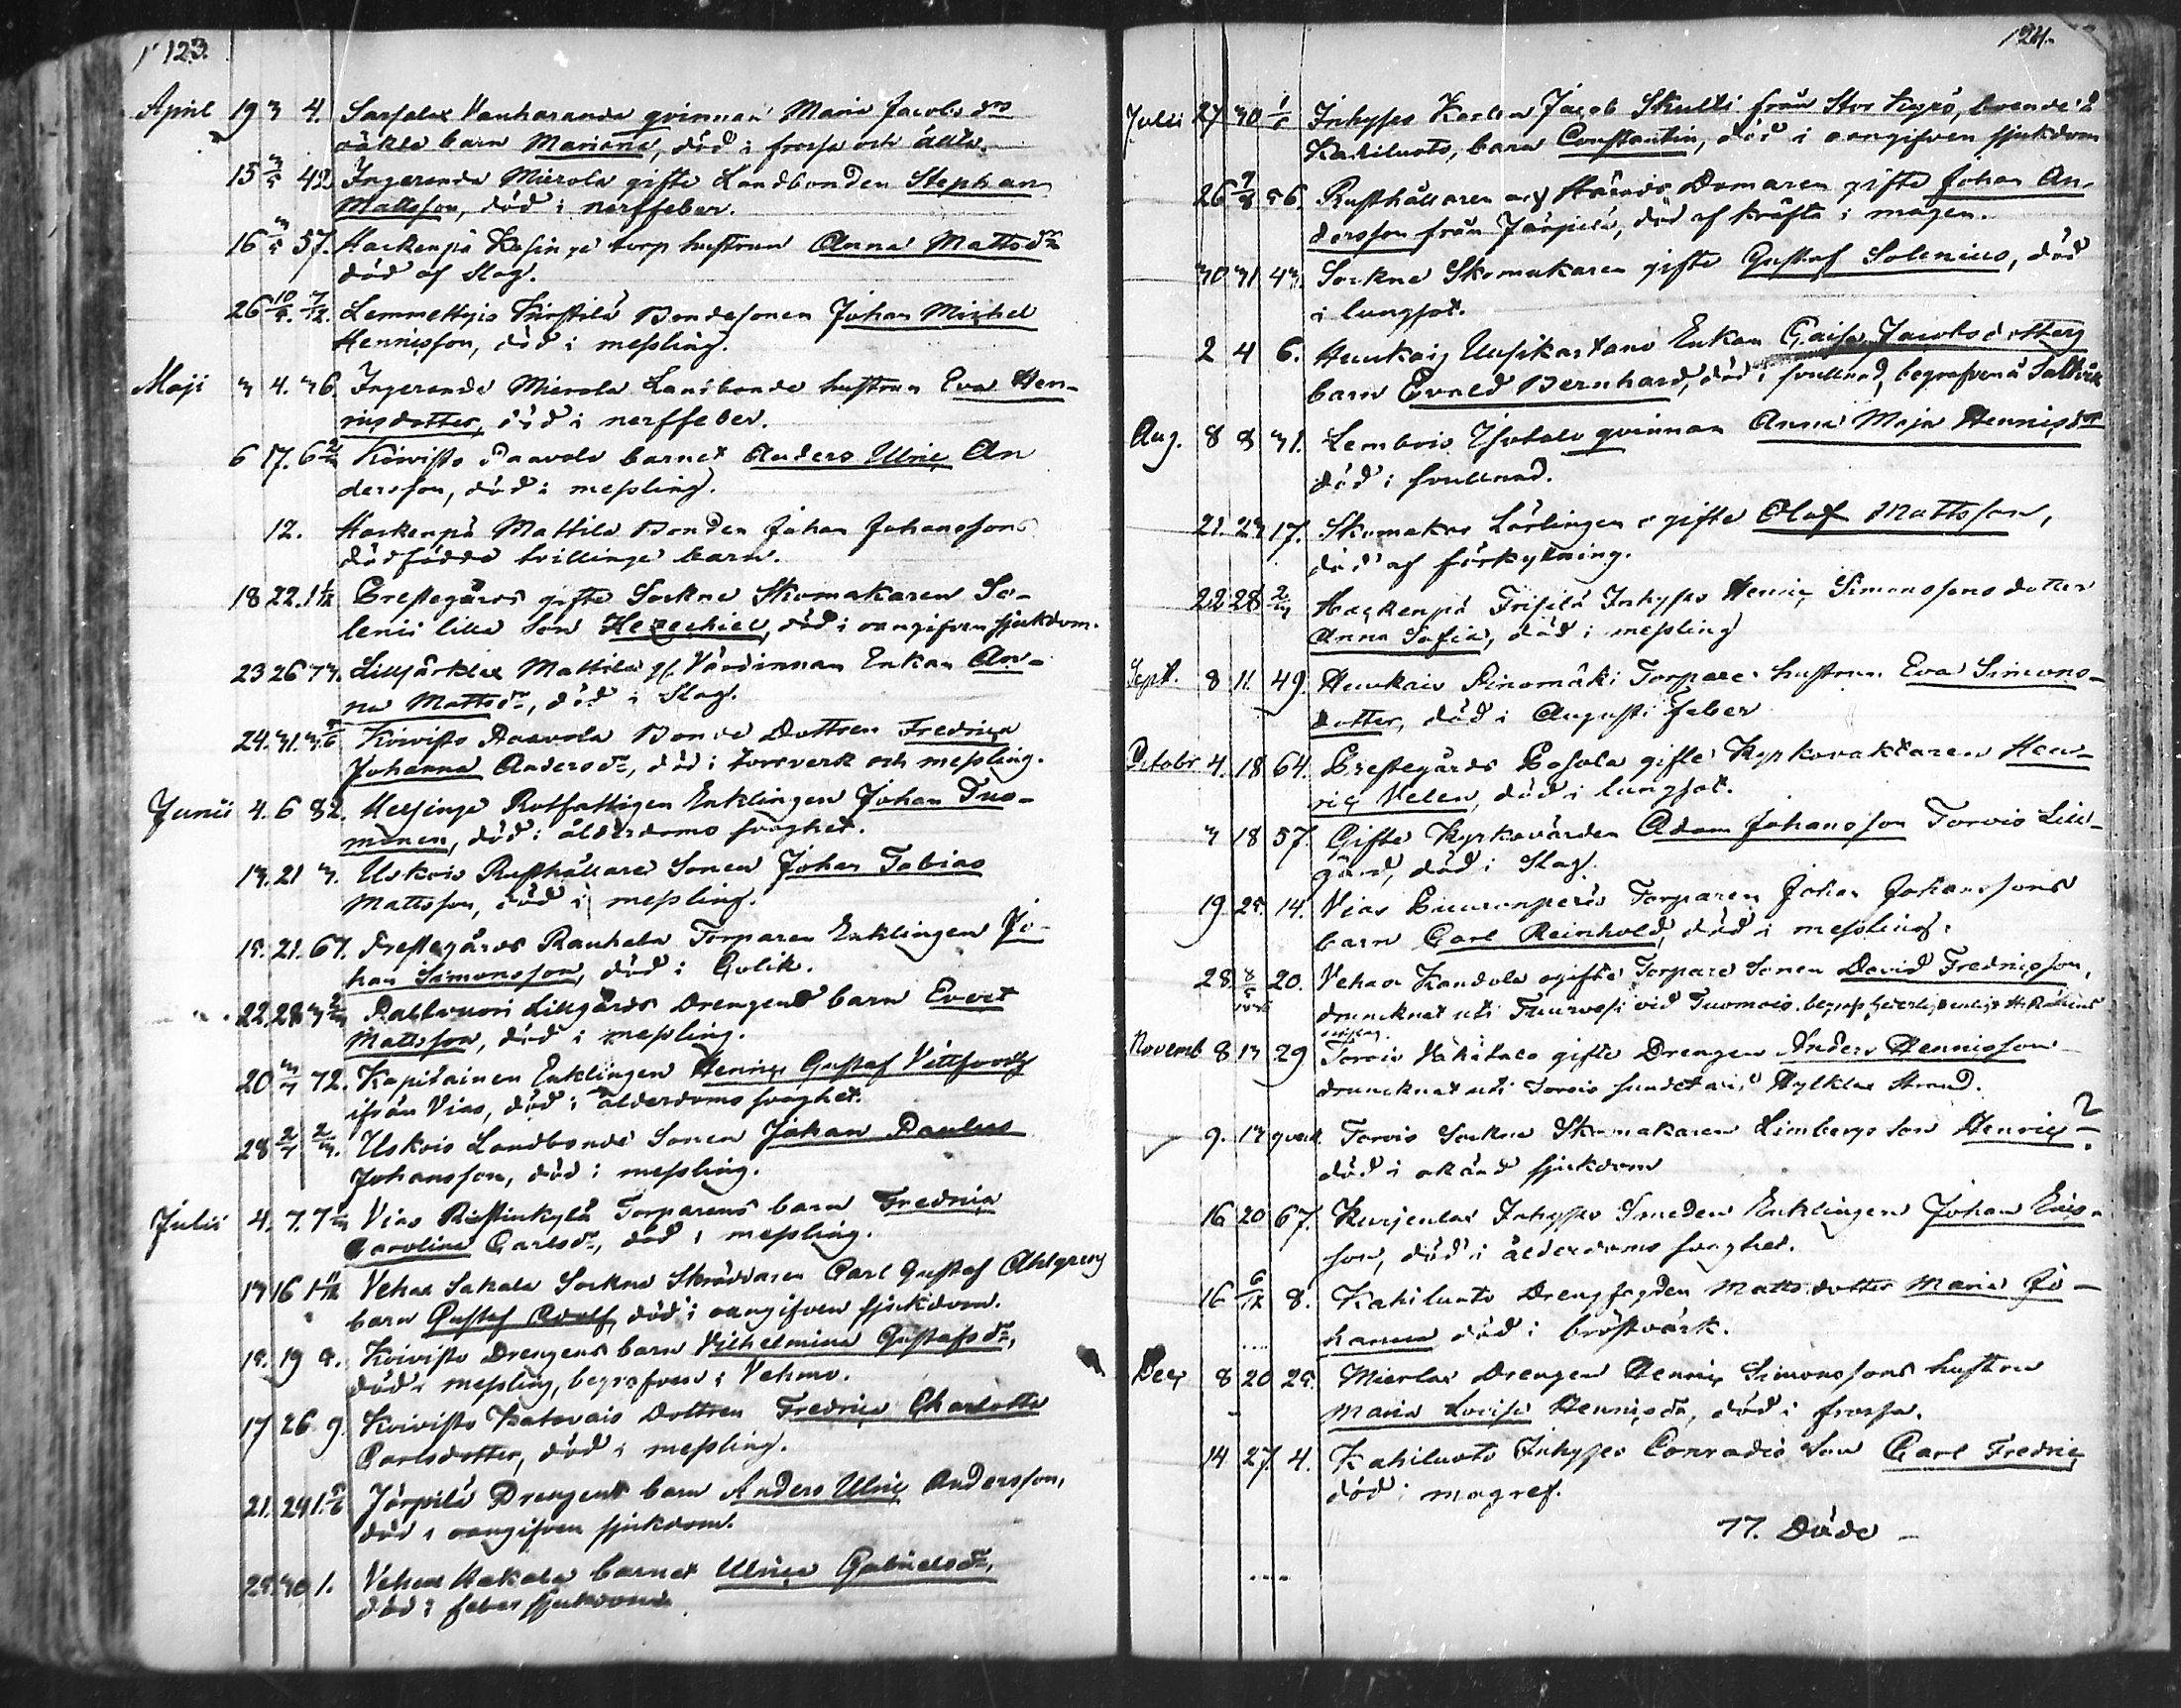 123.
April 19 3 4. Sarfalax Vanharanda qvinnan Maria Jacobs drs
oäkta barn Mariana, död i frossa och älta.
15 3/5 42 Ingeranda Mierola gifte Landbonden Stephan
Mattsson, död i nerffeber.
16 3/5 57. Hackenpä torp hustrun Anna Mattsdr
död af Slag.
26 10/5. 7/12. Lemmettyis Tirstilä Bondesonen Johan Michel
Henricsson, död i messling.
Maji 3 4. 36. Ingeranda Mierola Landbonde hustrun Eva Hen-
ricsdotter, död i nerffeber.
6 17. 6 Koivisto Paavola barnet Anders Ulric An
dersson, död i messling.
12. Hackenpä Mattila Bonden Johan Johanssons
dödfödda tvillinge barn.
18 22. 1 Prestegårds gifte Sockne Skomakaren So-
lenii lilla Son Hezechiel, död i oangifven sjukdom.
23 26 73. Lilljärklax Mattila gl. Värdinnan Enkan An-
na Mattsdr, död i Slag.
24. 31. 3. Koivisto Paavola Bonde Dottren Fredrica
Johanna Andersdr, död i torrverk och messling.
Junii 4. 6 82. Helsinge Rotfattigen Enklingen Johan Tuo-
monen, död i ålderdoms svaghet.
13. 21 3. Uskois Rusthållare Sonen Johan Tobias
Mattsson, död i messling.
15. 21. 67. Prestegårds Rauhala Torparen Enklingen Jo-
han Simonsson, död i Colik.
22. 28 3 Pallvuori Lillgårds Drengens barn Evert
Mattsson, död i messling.
20 3/7 72. Kapitainen Enklingen Henric Gustaf Vittfoorth
ifrån Vias, död i ålderdoms svaghet.
28 2/7 2/3. Uskois Landbonde Sonen Johan Paulus
Johansson, död i messling.
Julii 4. 7. 7 Vias Ristinkylä Torparens barn Fredrica
Carolina Carlsdr, död i messling.
13 16 1 Vehax Sakala Sockne Skräddaren Carl Gustaf Ahlgrens
barn Gustaf Adolf, död i oangifven sjukdom.
15. 19 9. Koivisto Drengens barn Vilhelmina Gustafsdr,
död i messling, begrafven i Vehmo.
17 26 9. Koivisto Katavais Dottren Fredrica Charlotta
Carlsdotter, död i messling.
21. 24 1. 5/6 Järpilä Drengens barn Anders Ulric Andersson,
död i oangifven sjukdom.
25. 30 1. Vehax Kakala barnet Ulrica Gabrielsdr,
död i feber sjukdom.
124.
Julii 27 30 Inhyses Karlen Jacob Skultti från Stor Kyro, boende å
Kahiluoto, barn Constantin, död i oangifven sjukdom
26 7/8 56. Rusthållaren och Härads Domaren gifte Johan An-
dersson från Järpilä, död af kräfta i magen.
30 31 43. Sockne Skomakaren gifte Gustaf Solenius, död
i lungsot.
2 4 6. Haukois Uusikartano Enkan Caisa Jacobsdotters
barn Evald Bernhard, död i svullnad, begrafven å Saltvik
Aug. 8 8 31. Lembois Isotalo qvinnan Anna Maja Henricsdr
död i svullnad.
21. 23 17. Skomakar Lärlingen ogifte Olof Mattsson,
död af förkylning.
22 28 2/3 Hackenpä Frisilä Inhyses Henric Simonssons dotter
Anna Sofia, död i messling
Sept. 8 11. 49. Haukois Pinomäki Torpare hustrun Eva Simons-
dotter, död i Augusti feber
Octobr 4. 18 64. Prestegårds Pahola gifte Kyrkovaktaren Hen-
ric Velen, död i lungsot.
3 18 57. Gifte Kyrkovärden Adam Johansson Torvis Lill-
gård, död i Slag.
19. 25. 14. Vias Torparen Johan Johanssons
barn Carl Reinhold, död i messling.
28 8/5 20. Vehax Kandola ogifte Torpare Sonen David Fredricsson,
drunknat uti Tuurvesi vid Tuomois.
Novemb 8 13 29 Torvis gifte Drengen Anders Henricsson
drunknat uti Torvis sundet vid Hylklax strand.
9. 13 Torvis Sockne Skomakaren Limbergs son Henric ?
död i okänd sjukdom
16 20 67. Kurjenlax Inhyses Smeden Enklingen Johan Erics-
son, död i ålderdoms svaghet.
16 6/12 8. Kahiluoto Drengfogden Matts dotter Maria Jo-
hanna död i bröstvärk.
Dec 8 20 25. Mierlax Drengen Henric Simonssons hustru
Maria Lovisa Henricsdr, död i frossa.
14 27. 4. Kahiluoto Inhyses Conradis Son Carl Fredric
död i magref.
77. Döde